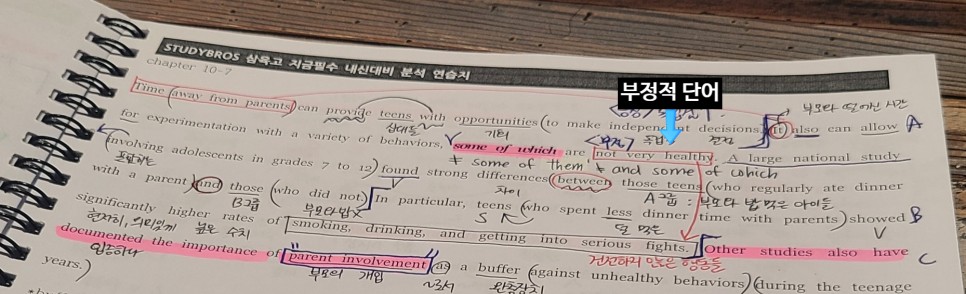 STUDYBROS 삼육고 지금필수 내신대비 분석 연습지
chapter 10-7
부정적 단어
부모와 떨어진 시간
Time (away from parents) can provide teens with opportunities (to make independent decisions.) It also can allow A
십대들 기회
for experimentation with a variety of behaviors, some of which are not very healthy. A large national study
* some of them * and some of which
(involving adolescents in grades 7 to 12) found strong differences (between those teens (who regularly ate dinner
포함하는 차이 A그룹 : 부모와 밥 먹은 아이들
with a parent) and those (who did not). In particular, teens (who spent less dinner time with parents) showed B
B그룹 부모와 밥X S 덜 먹은 V
significantly higher rates of smoking, drinking, and getting into serious fights. Other studies also have C
현저히, 의미있게 높은 수치 건전하지 않은 행동들
documented the importance of "parent involvement" as a buffer (against unhealthy behaviors) (during the teenage
입증하다 부모의 개입 ~로서 완충장치
years.)